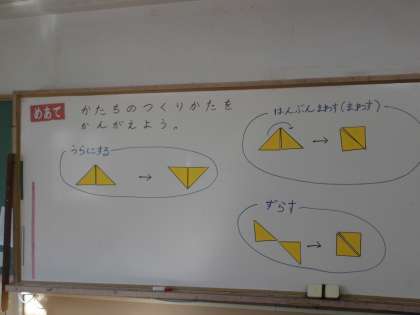 めあて
かたちのつくりかたを
かんがえよう。
うらにする
はんぶんまわす(まわす)
ずらす